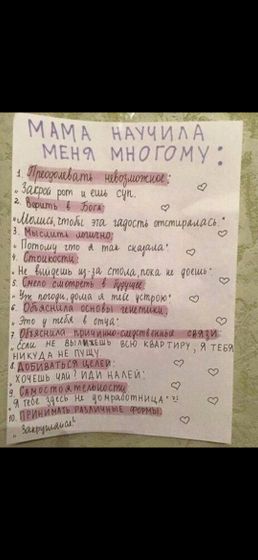 МАМА НАУЧИЛА
МЕНЯ МНОГОМУ:
1. Преодолевать невозможное:
"Закрой рот и ешь суп.
2. Верить в Бога
"Молись, чтобы эта гадость отстиралась."
3. Мыслить логично:
"Потому что я так сказала"
4. Стойкости:
"Не выйдешь из-за стола, пока не доешь"
5. Смело смотреть в будущее
"Ну погоди, дома я тебе устрою"
6. Объяснила основы генетики:
"Это у тебя в отца"
7. Объяснила причинно-следственные связи
"если не вылижешь всю квартиру, я тебя
никуда не пущу
8. Добиваться целей:
"Хочешь чай? Иди налей"
9. Самостоятельности
"Я тебе здесь не домработница"
10. Принимать различные формы
"Закругляйся"